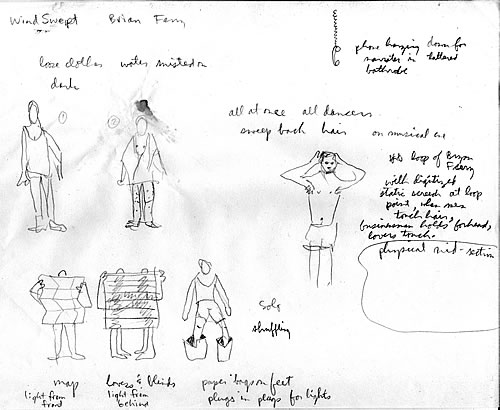 Wind Swept Bryan Ferry
loose clothes water misted on
dark
① ②
phone hanging down for
narrator in tattered
bathrobe
all at once all dancers
sweep back hair on musical cue
loop of Bryan
Ferry
with digitized
static screech at loop
point when men
touch hair,
businessman holds forehead,
lovers touch.
physical mid-section
solo
shuffling
map
light from
front
lovers & blinds
light from
behind
paper bags on feet
plugs in plugs for lights